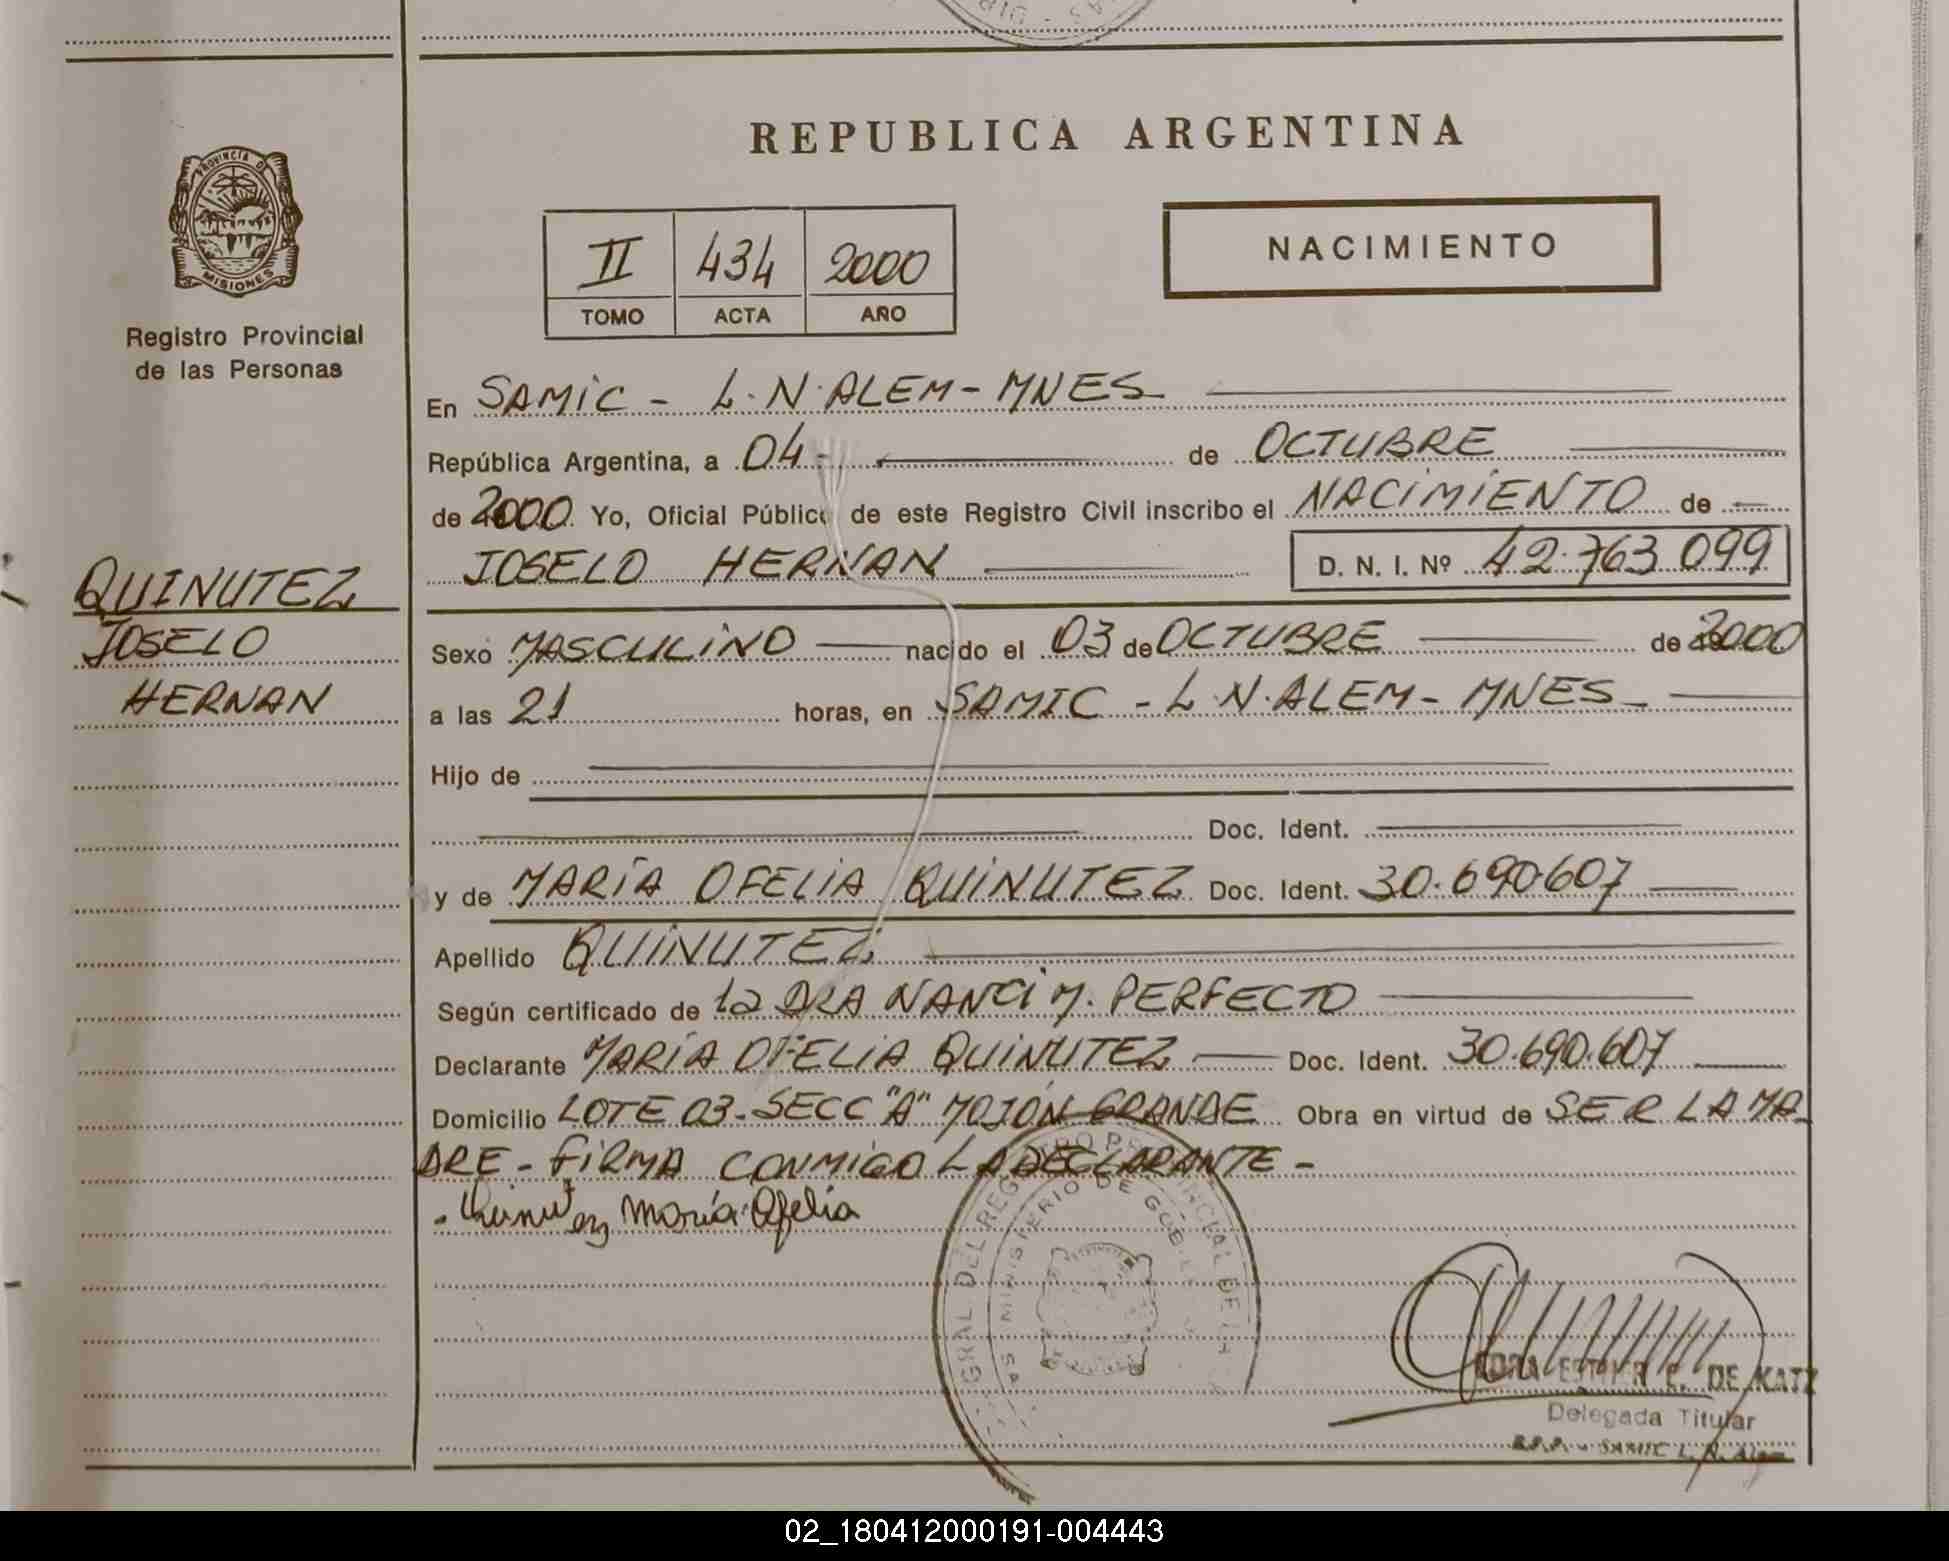 REPUBLICA ARGENTINA
PROVINCIA DE
MISIONES
Registro Provincial
de las Personas
II 434 2000
TOMO ACTA AÑO
NACIMIENTO
En SAMIC - L.N.ALEM - MNES
República Argentina, a 04 - de OCTUBRE
de 2000. Yo, Oficial Público de este Registro Civil inscribo el NACIMIENTO de
JOSELO HERNAN D. N. I. Nº 42.763.099
QUINUTEZ
JOSELO
HERNAN
Sexo MASCULINO nacido el 03 de OCTUBRE de 2000
a las 21 horas, en SAMIC - L.N.ALEM - MNES
Hijo de
Doc. Ident.
y de MARÍA OFELIA QUINUTEZ Doc. Ident. 30.690.607
Apellido QUINUTEZ
Según certificado de la DRA NANCI M. PERFECTO
Declarante MARÍA OFELIA QUINUTEZ Doc. Ident. 30.690.607
Domicilio LOTE 03 - SECC "A" MOJÓN GRANDE Obra en virtud de SER LA MA-
DRE - FIRMA CONMIGO LA DECLARANTE -
Quinutez María Ofelia
GRAL DEL REGISTRO PROVINCIAL DE LA
MINISTERIO DE GOB
ESTHER E. DE KATZ
Delegada Titular
R.P.P. - SAMIC L. N. Alem
02_180412000191-004443